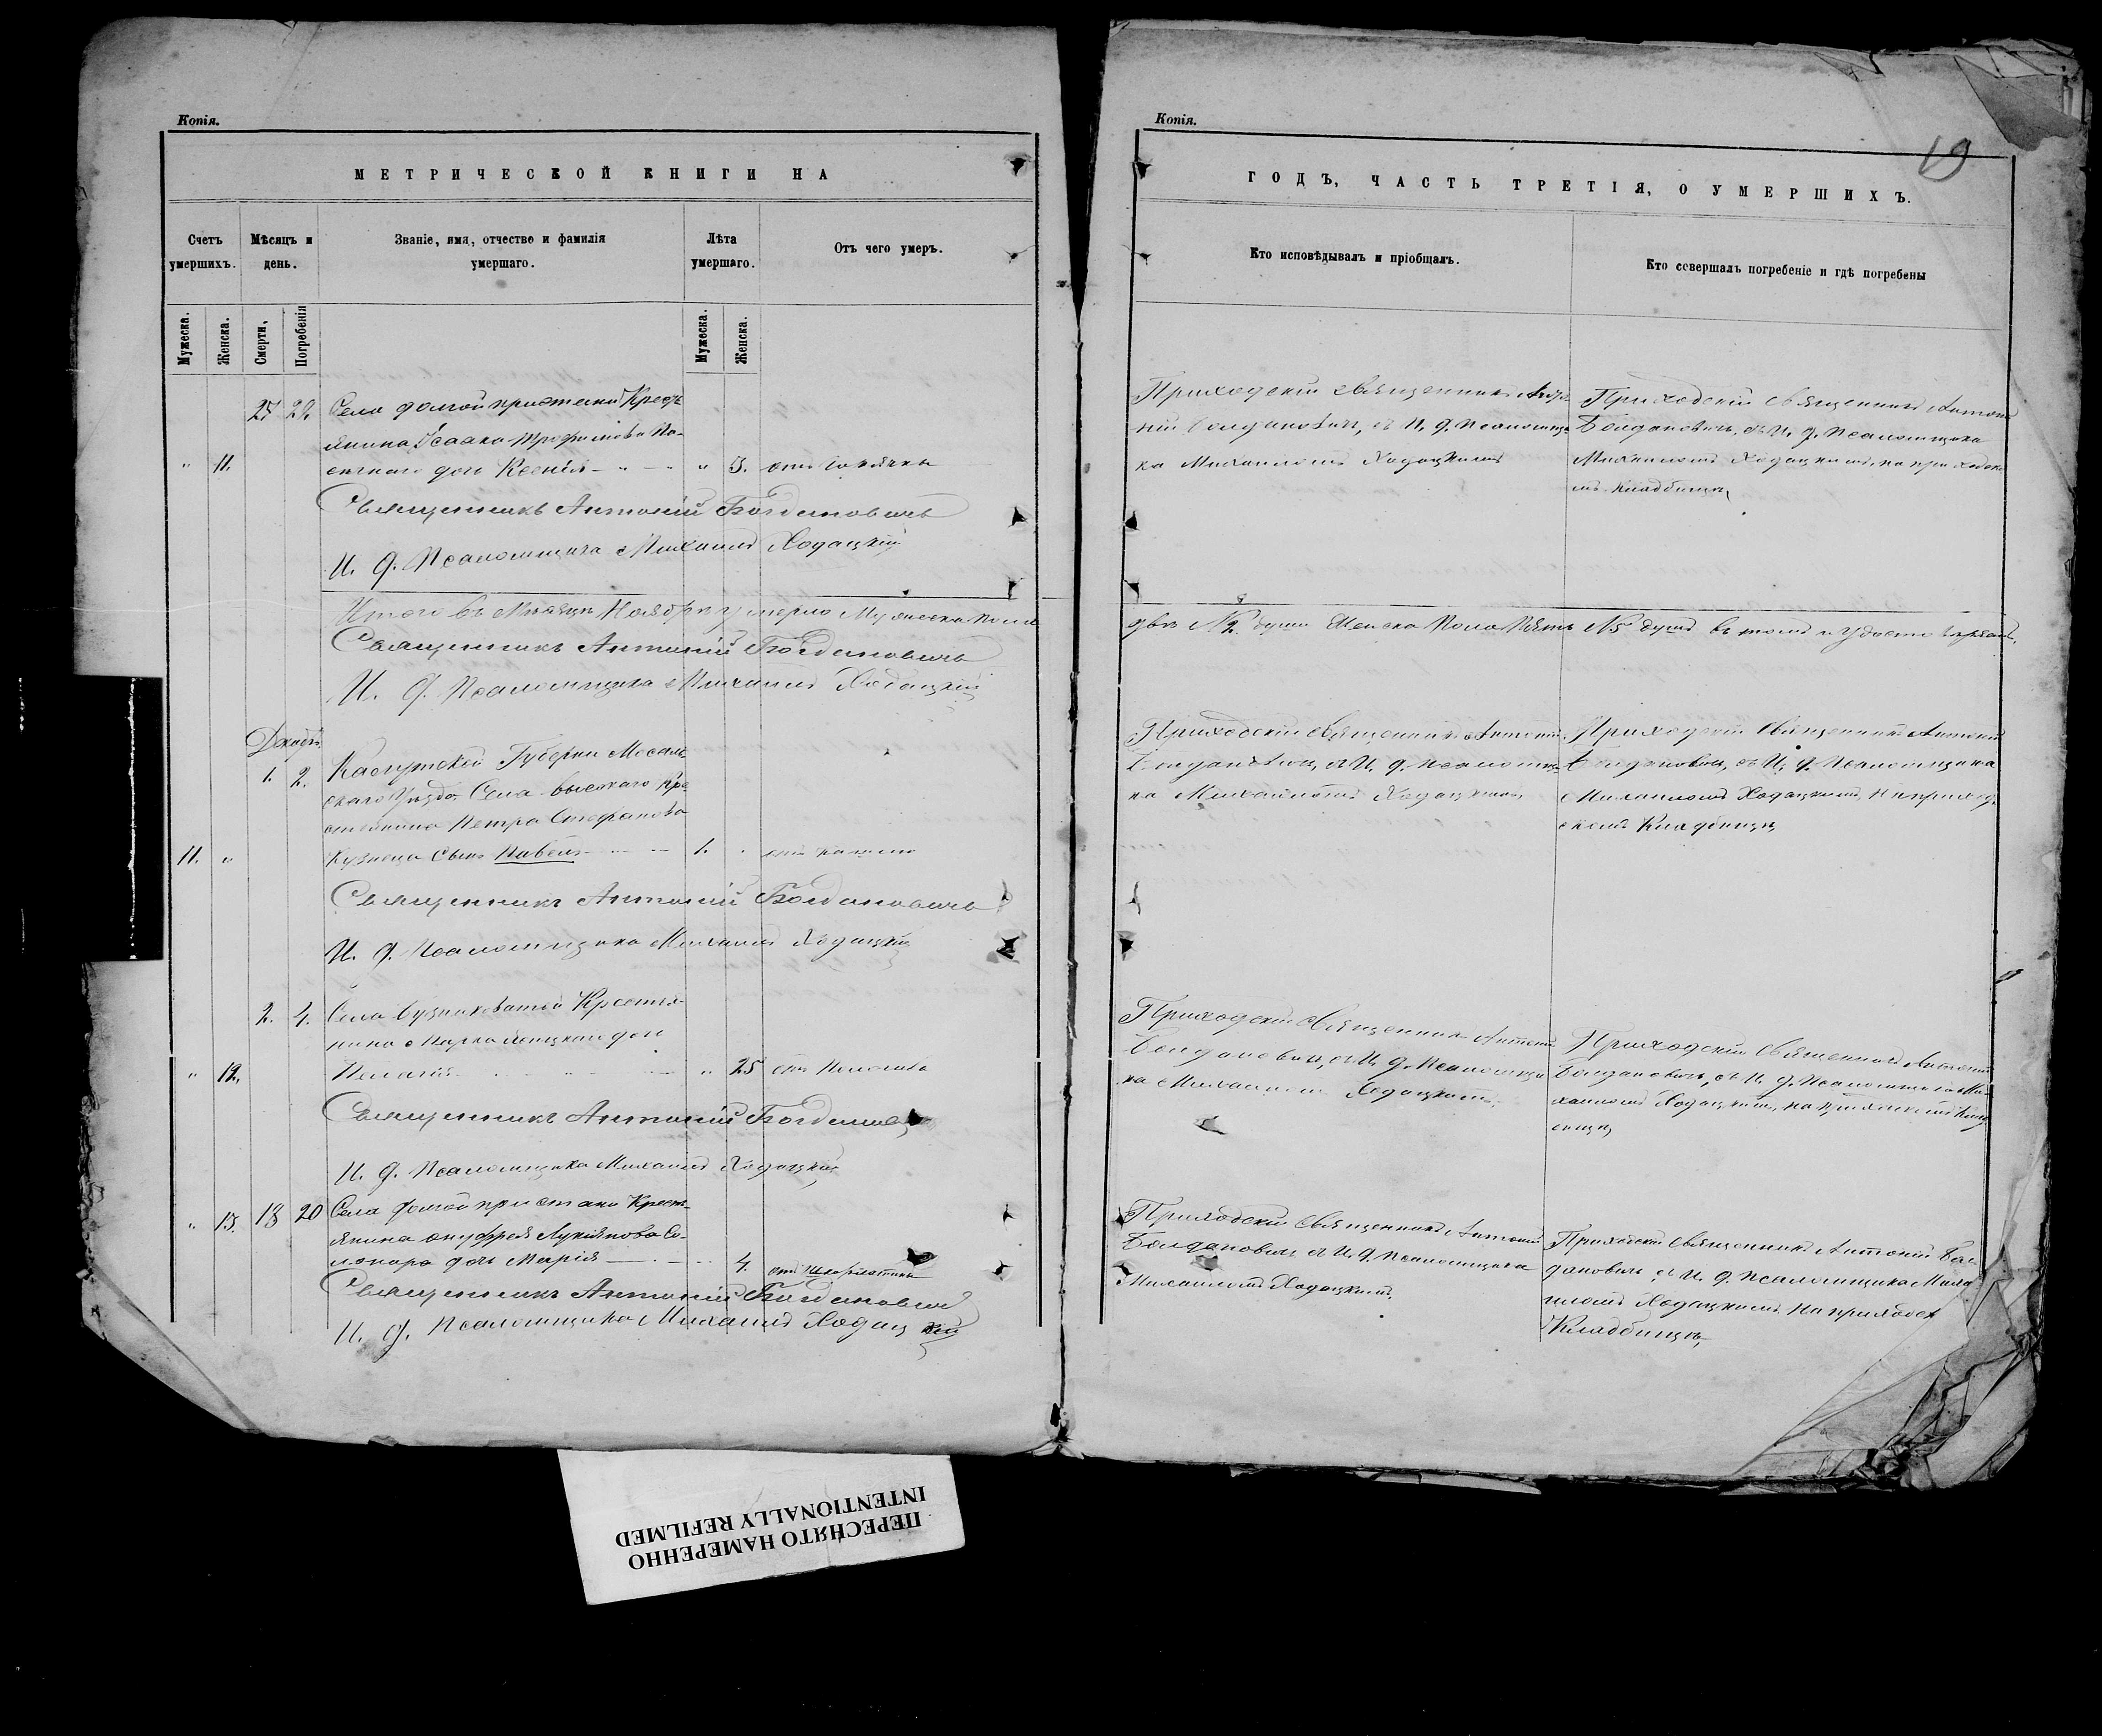 Копія.
МЕТРИЧЕСКОЙ КНИГИ НА
Счетъ умершихъ.
Мѣсяцъ и день.
Званіе, имя, отчество и фамилія умершаго.
Лѣта умершаго.
Отъ чего умеръ.
Мужеска.
Женска.
Смерти,
Погребенія
Мужеска.
Женска.
27 29 Села долгой пристани Кресть-
янина Исаака Трофимова
" 11. дочь Ксенія " 3. отъ горячки
Священникъ Антоній Богдановичъ
И. д. Псаломщика Михаилъ Ходацкій
Итого въ Мѣсяцѣ Ноябрѣ умерло Мужеска пола
Священникъ Антоній Богдановичъ
И. д. Псаломщика Михаилъ Ходацкій
Декабрь
1. 2. Калужской Губерніи Мосаль-
скаго Уѣзда Села высокаго Кре-
стьянина Петра Стефанова
11. " Кузнеца сынъ Павелъ 1. " отъ кашлю
Священникъ Антоній Богдановичъ
И. д. Псаломщика Михаилъ Ходацкій
2. 4. Села Бузниковатой Крестья-
нина Марка дочь
" 12. Пелагія " 25 отъ
Священникъ Антоній
И. д. Псаломщика Михаилъ Ходацкій
" 13. 18 20 Села долгой пристани Кресть-
янина Онуфрея Лукіянова Со-
дочь Марія 4. отъ
Священникъ Антоній Богдановичъ
И. д. Псаломщика Михаилъ Ходацкій
Копія.
19
ГОДЪ, ЧАСТЬ ТРЕТІЯ, О УМЕРШИХЪ.
Кто исповѣдывалъ и пріобщалъ.
Кто совершалъ погребеніе и гдѣ погребены
Приходскій священникъ Анто-
ній Богдановичъ, съ И. д. Псаломщи-
ка Михаиломъ Ходацкимъ
Приходскій священникъ Антоній
Богдановичъ, съ И. д. Псаломщика
Михаиломъ Ходацкимъ, на приходско
мъ кладбищѣ
двѣ № 2. души Женска Пола Пять № 5 душъ въ томъ и
Приходскій священникъ Антоній
Богдановичъ, съ И. д. псаломщи-
ка Михаиломъ Ходацкимъ,
Приходскій священникъ Антоній
Богдановичъ, съ И. д. Псаломщика
Михаиломъ Ходацкимъ, на приход-
скомъ Кладбищѣ
Приходскій священникъ Антоній
Богдановичъ, съ И. д. Псаломщи
ка Михаиломъ Ходацкимъ,
Приходскій священникъ Антоній
Богдановичъ, съ И. д. Псаломщика Ми-
хаиломъ Ходацкимъ, на приходскомъ
Приходскій священникъ Антоній
Богдановичъ съ И. д. псаломщика
Михаиломъ Ходацкимъ.
Приходскій священникъ Антоній Бог-
дановичъ, съ И. д. псаломщика Миха
иломъ Ходацкимъ на приходск
Кладбищѣ,
ПЕРЕСНЯТО НАМЕРЕННО
INTENTIONALLY REFILMED